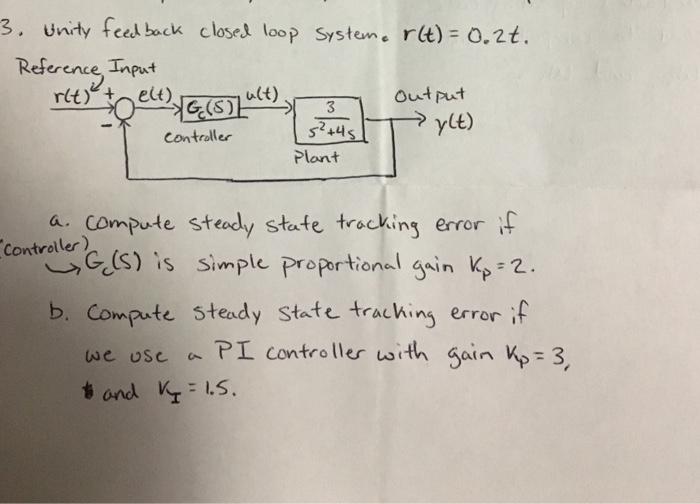 3. Unity feedback closed loop system. r(t) = 0.2t.
Reference Input
r(t) + e(t) Gc(S) u(t) 3 output
- s²+4s y(t)
controller
Plant
a. compute steady state tracking error if
(controller)
Gc(S) is simple proportional gain Kp = 2.
b. Compute steady state tracking error if
we use a PI controller with gain Kp = 3,
and KI = 1.5.